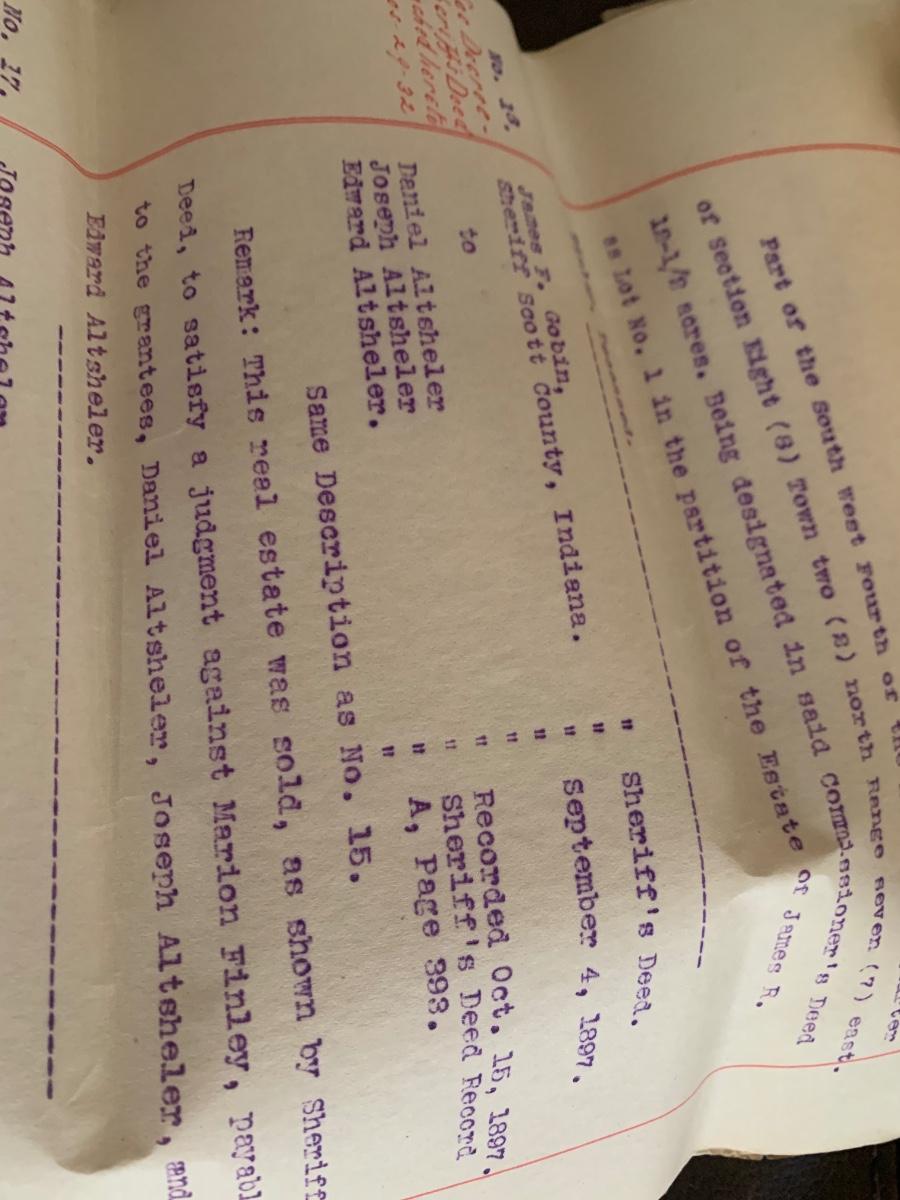 Part of the South West Fourth of the
of Section Eight (8) Town two (2) north Range seven (7) east.
acres. Being designated in said Commissioner's Deed
as Lot No. 1 in the partition of the Estate of James R.
----------------------------------------
James F. Gobin,
Sheriff Scott County, Indiana.
to
Daniel Altsheler
Joseph Altsheler
Edward Altsheler.
" Sheriff's Deed.
"
" September 4, 1897.
"
"
" Recorded Oct. 15, 1897.
" Sheriff's Deed Record
" A, Page 393.
"
Same Description as No. 15.
Remark: This real estate was sold, as shown by Sheriff
Deed, to satisfy a judgment against Marion Finley, payabl
to the grantees, Daniel Altsheler, Joseph Altsheler, and
Edward Altsheler.
----------------------------------------
No. 17. Joseph Altsheler